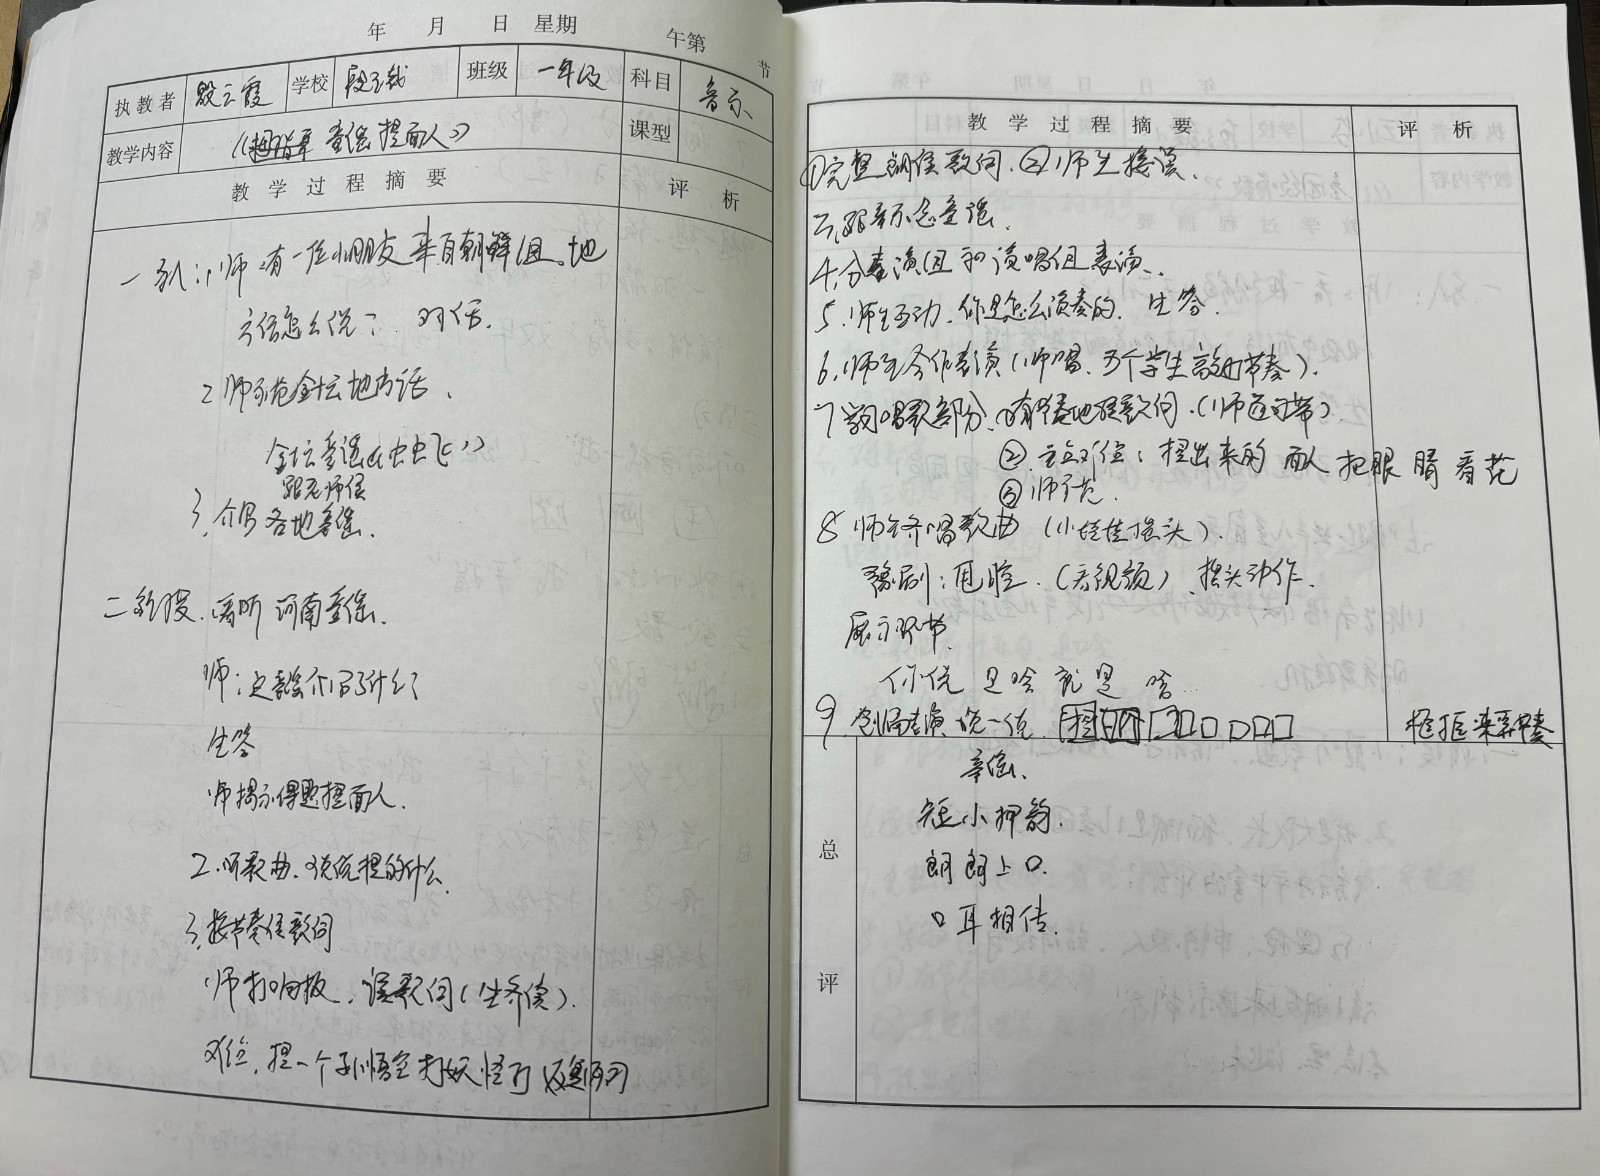 年 月 日 星期 午第 节
执教者 殷云霞 学校 段玉裁 班级 一年级 科目 音乐
教学内容 捏面人》 课型
教学过程摘要 评析
一 引入：1、师：有一位小朋友来自朝鲜组。地
方话怎么说？ 对话.
2 师示范金坛地方话、
金坛童谣《虫虫飞》
跟老师读
3、介绍各地童谣.
二 新授、1、聆听河南童谣.
师：这首童谣介绍了什么？
生答
师揭示课题捏面人.
2.听歌曲、说说捏的什么
3、按节奏读歌词
师打响板、读歌词（生齐读）.
难位，捏一个孙悟空打妖怪 反复两习
教学过程摘要 评析
①完整朗读歌词. ②师生接读.
4、分表演组和演唱组表演、
5、师生互动、你是怎么演奏的. 生答.
6、师生合作表演（师唱、5个学生敲节奏）.
7 学习唱歌部分、歌词.（师
②. 难位：捏出来的面人把眼睛看花
③师示范.
8 师生齐唱歌曲（小娃娃摇头）.
豫剧：甩腔.（看视频） 摇头动作.
展示环节
你说是啥就是啥…
9、创编表演 说一说
总评
童谣.
短小押韵.
朗朗上口.
口耳相传.